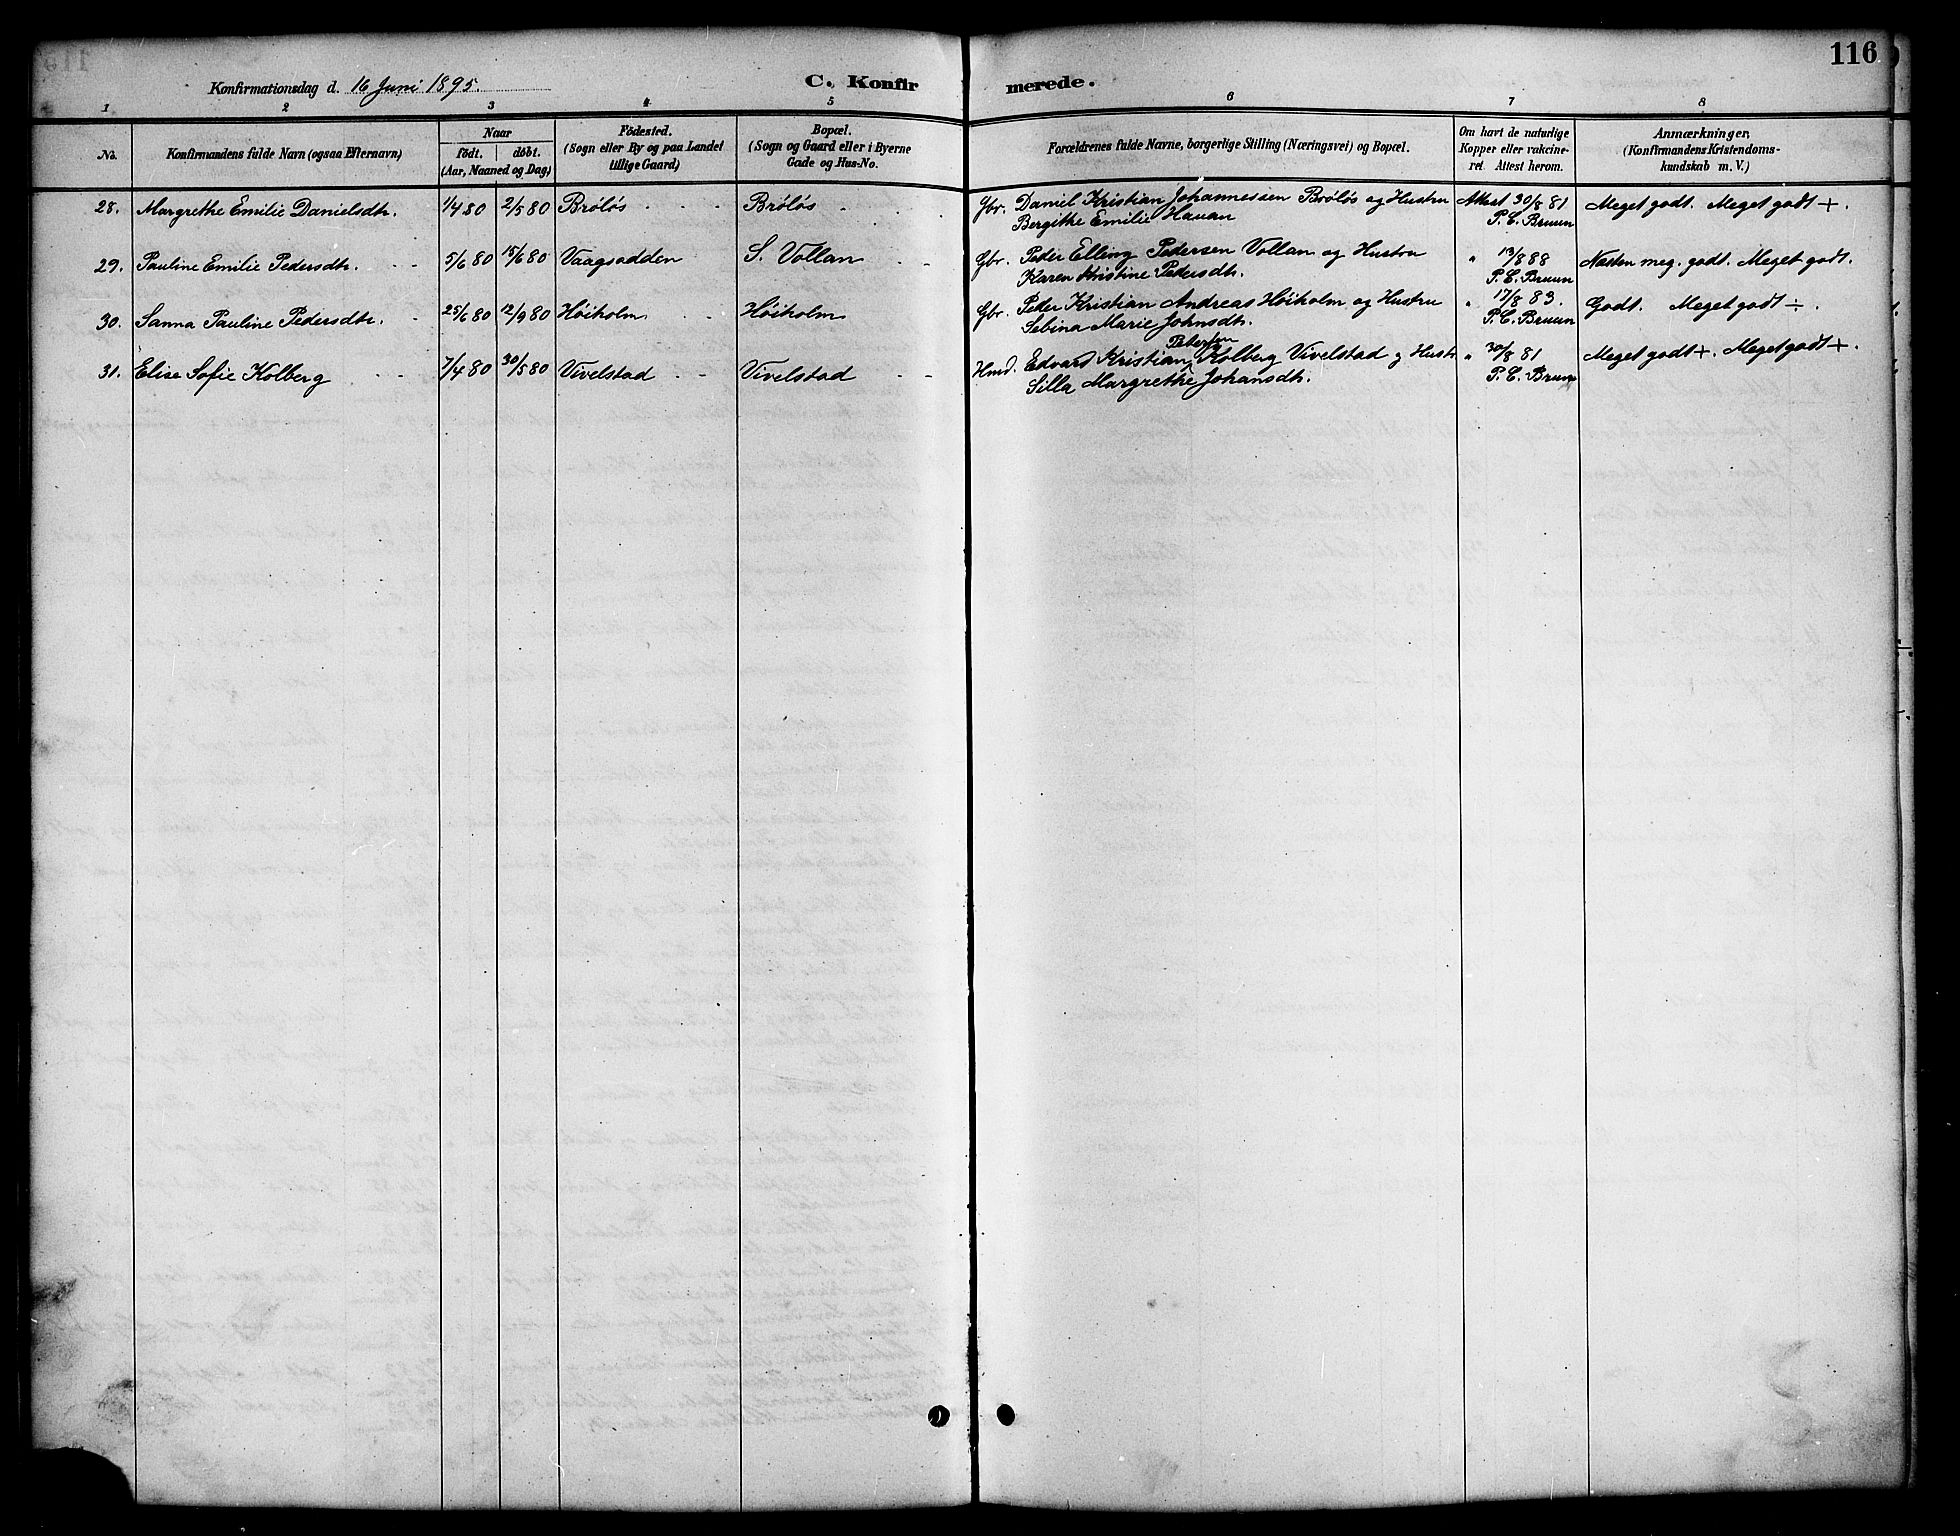 116
Konfirmationsdag d. 16 Juni 1895.
C. Konfirmerede.
1 2 3 4 5 6 7 8
No.
Konfirmandens fulde Navn (ogsaa Efternavn)
Naar
födt. döbt.
(Aar, Maaned og Dag)
Födested.
(Sogn eller By og paa Landet
tillige Gaard)
Bopæl.
(Sogn og Gaard eller i Byerne
Gade og Hus-No.
Forældrenes fulde Navne, borgerlige Stilling (Næringsvei) og Bopæl.
Om havt de naturlige
Kopper eller vakcine-
ret. Attest herom.
Anmærkninger,
(Konfirmandens Kristendoms-
kundskab m. V.)
28. Margrethe Emilie Danielsdtr. 1/4 80 2/5 80 Brölös Brölös Gbr. Daniel Kristian Johannessen Brölös og Hustru Attest 30/8 81 Meget godt. Meget godt +.
Bergithe Emilie Hauan P. C. Bruun
29. Pauline Emilie Pedersdtr. 5/6 80 15/6 80 Vaagsodden S. Vollan Gbr. Peder Elling Pedersen Vollan og Hustru " 13/8 88 Næsten meg. godt. Meget godt.
Karen Kristine Pedersdtr. P. C. Bruun
30. Sanna Pauline Pedersdtr. 25/6 80 12/9 80 Höiholm Höiholm Gbr. Peter Kristian Andreas Höiholm og Hustru " 17/8 83. Godt. Meget godt ÷.
Sebina Marie Johnsdtr. P. C. Bruun
Petersen
31. Elise Sofie Kolberg 7/4 80 30/5 80 Vivelstad Vivelstad Hmd. Edvard Kristian Kolberg Vivelstad og Hustr " 30/8 81 Meget godt +. Meget godt +.
Silla Margrethe Johansdtr. P. C. Bruun